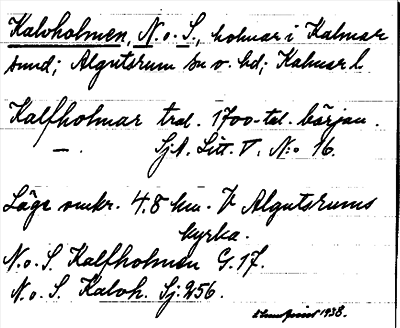 Kalvholmen, N. o. S., holmar i Kalmar
sund; Algutsrum sn o. hd; Kalmar l.
Kalfholmar trol. 1700-tal. början.
— . Sjk. Litt. V. N:o 16.
Läge omkr. 4.8 km. V Algutsrums
kyrka.
N. o. S. Kalfholmen G. 17.
N. o. S. Kalvh. Sj. 256.
1938.